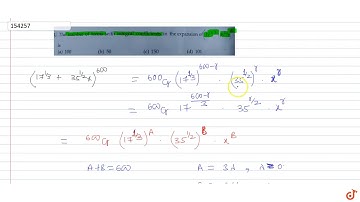 154257
The number of terms with integral coefficients in the expansion of
is
(a) 100 (b) 50 (c) 150 (d) 101
(17^{1/3} + 35^{1/2}x)^{600} = 600Cr (17^{1/3})^{600-r} · (35^{1/2})^r · x^r
= 600Cr 17^{\frac{600-r}{3}} · 35^{r/2} · x^r
= 600Cr (17^{1/3})^A · (35^{1/2})^B · x^B
A+B=600 A = 3λ , λ≥0